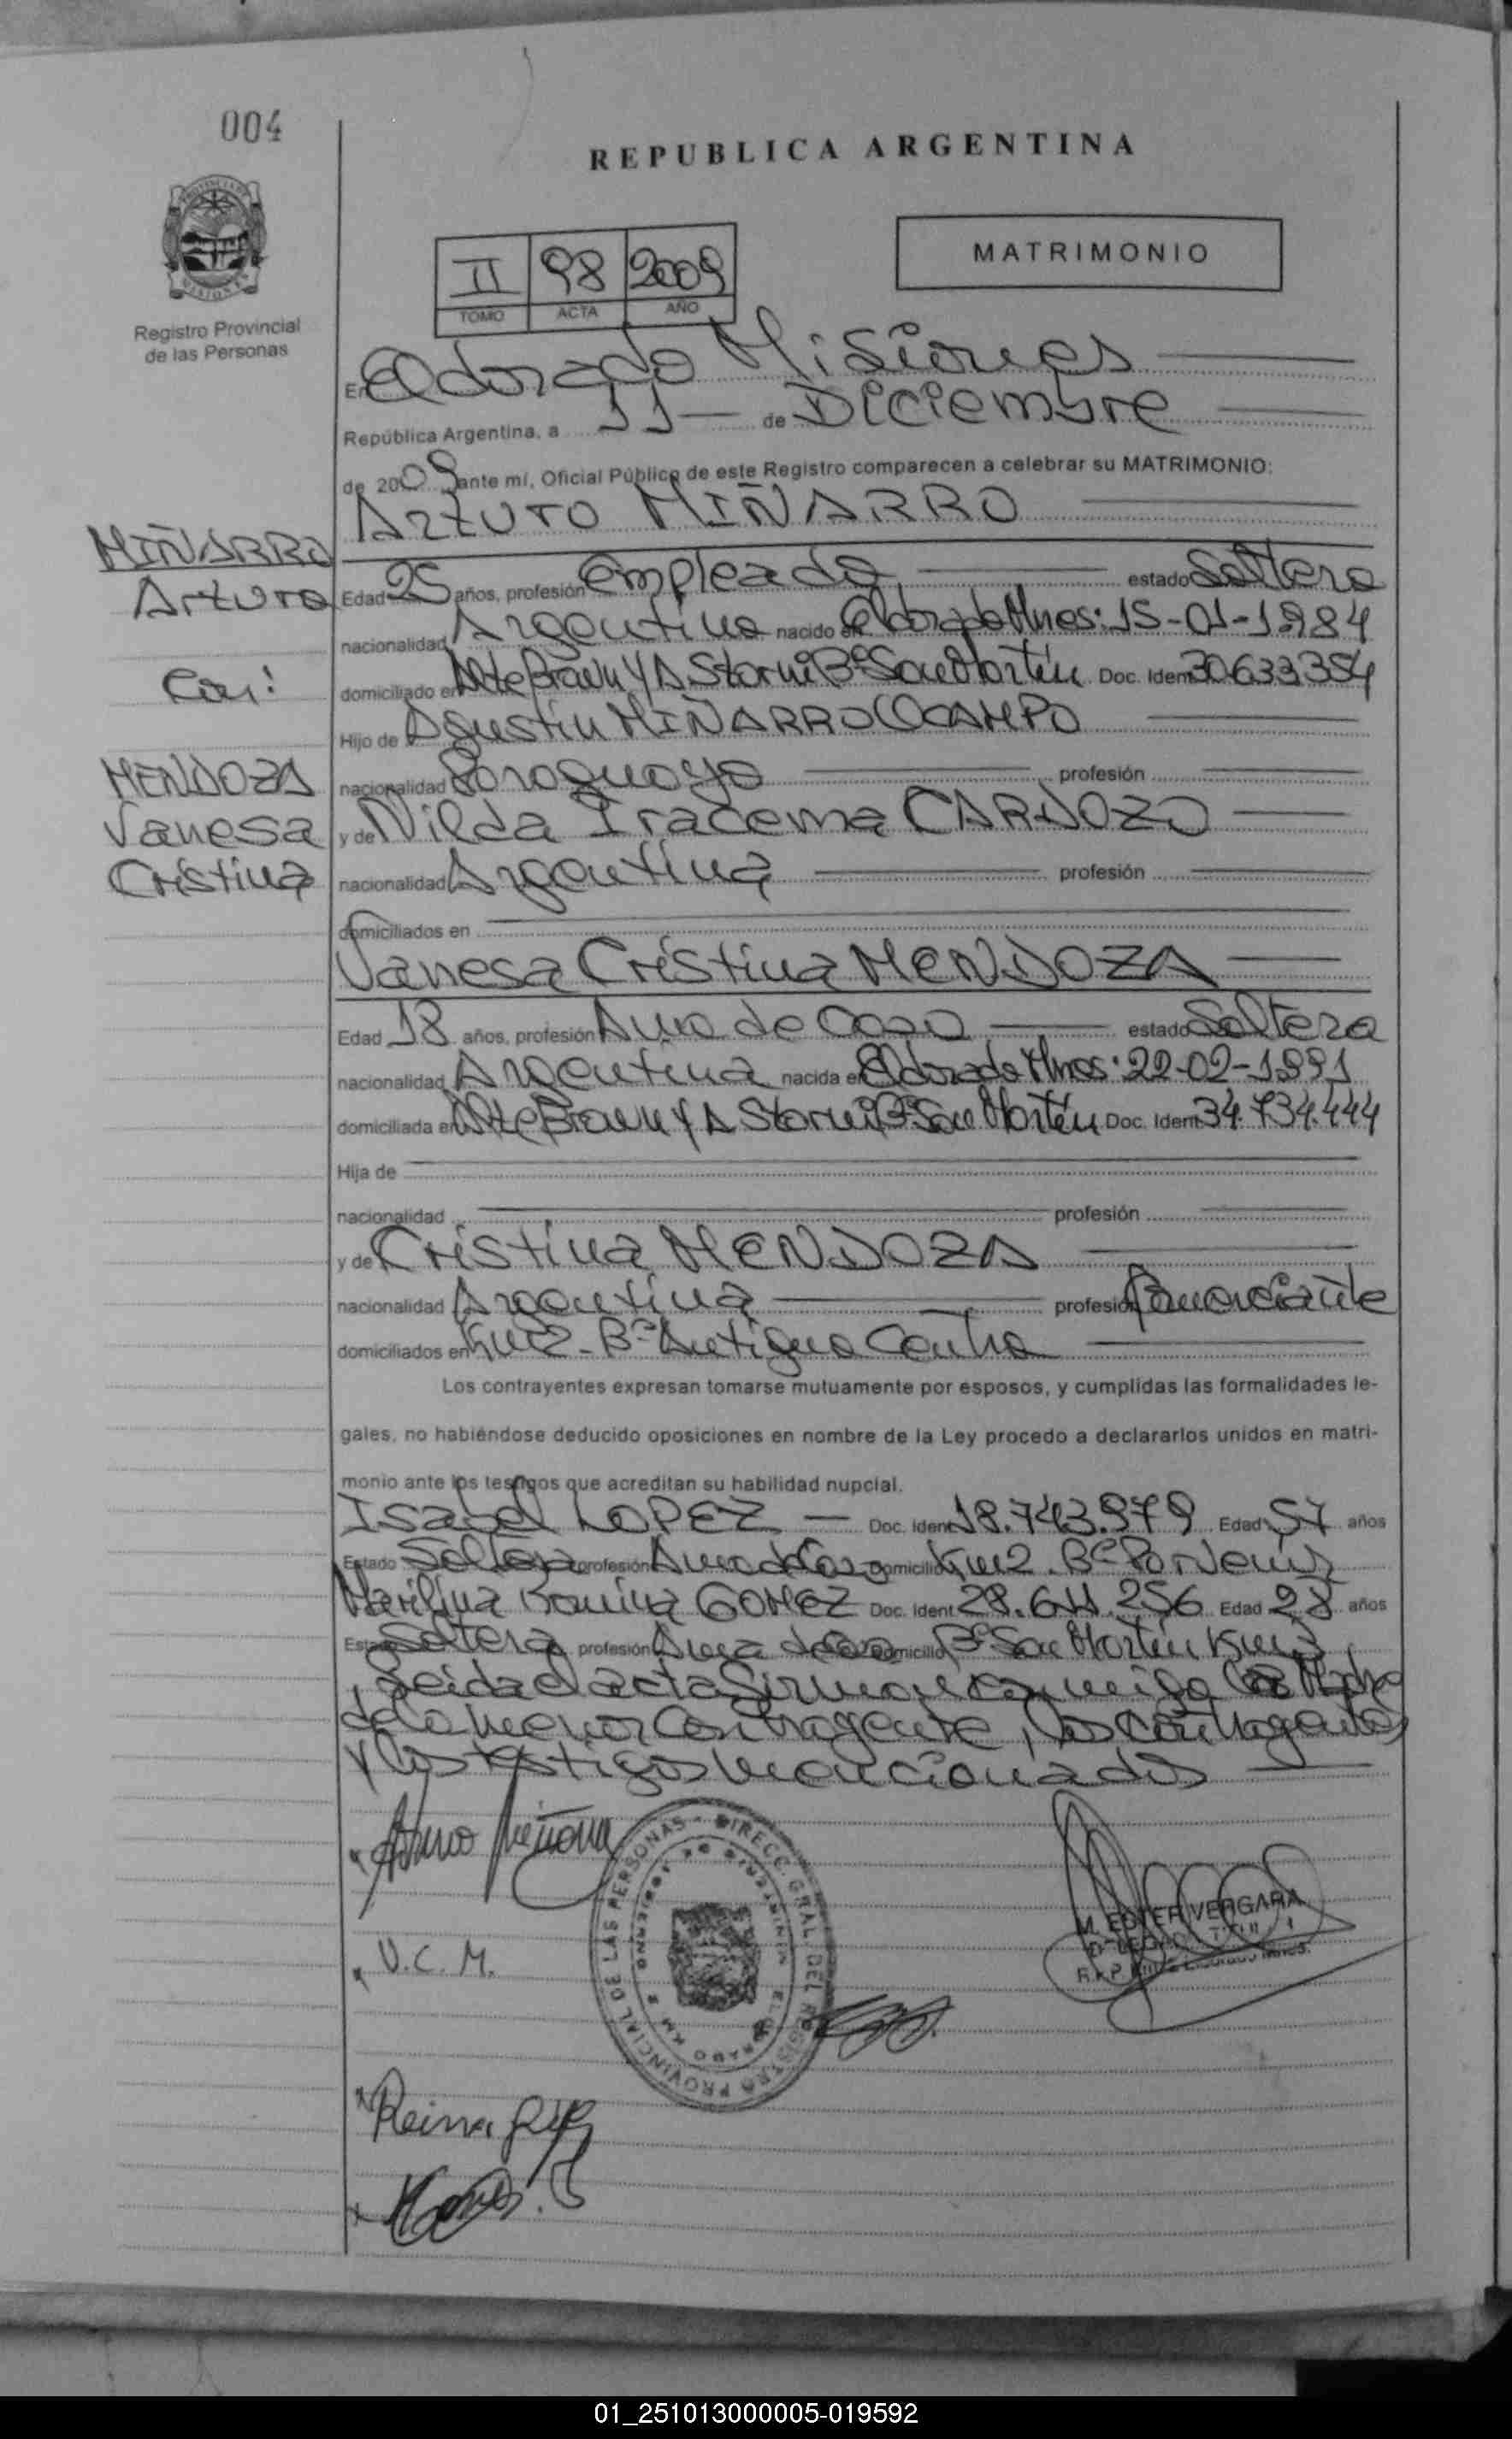 004
REPUBLICA ARGENTINA
MATRIMONIO
II 98 2009
TOMO ACTA AÑO
Registro Provincial
de las Personas
En Eldorado Misiones
República Argentina, a 11 de Diciembre
de 2009 ante mí, Oficial Público de este Registro comparecen a celebrar su MATRIMONIO:
Arturo MIÑARRO
MIÑARRO
Arturo
Con:
MENDOZA
Vanesa
Cristina
Edad 25 años, profesión Empleado estado Soltero
nacionalidad Argentino nacido en Eldorado Mnes: 15-01-1984
domiciliado en Alte Brown Y A Storni Bº San Martín Doc. Ident 30.633.354
Hijo de Agustín MIÑARRO OCAMPO
nacionalidad Paraguayo profesión
y de Nilda Iracema CARDOZO
nacionalidad Argentina profesión
domiciliados en
Vanesa Cristina MENDOZA
Edad 18 años, profesión Ama de Casa estado Soltera
nacionalidad Argentina nacida en Eldorado Mnes: 22-02-1991
domiciliada en Alte Brown Y A Storni Bº San Martín Doc. Ident 34.734.444
Hija de
nacionalidad profesión
y de Cristina MENDOZA
nacionalidad Argentina profesión Comerciante
domiciliados en Km2 - Bº Antiguo Centro
Los contrayentes expresan tomarse mutuamente por esposos, y cumplidas las formalidades le-
gales, no habiéndose deducido oposiciones en nombre de la Ley procedo a declararlos unidos en matri-
monio ante los testigos que acreditan su habilidad nupcial.
Isabel LOPEZ Doc. Ident 18.743.979 Edad 57 años
Estado Soltera profesión Ama de Casa Domicilio Km2. Bº Porvenir
Marilina Romina GOMEZ Doc. Ident 28.611.256 Edad 28 años
Estado Soltera profesión Ama de Casa Domicilio Bº San Martín Km3
Leida el acta firman conmigo la Madre
de la menor Contrayente, los contrayentes
y los testigos mencionados
Arturo
V. C. M.
PROVINCIAL DE LAS PERSONAS - DIRECC. GRAL. DEL REGISTRO
MINISTERIO DE GOBIERNO
ELDORADO KM 2
M. ESTER VERGARA
Reina
01_251013000005-019592